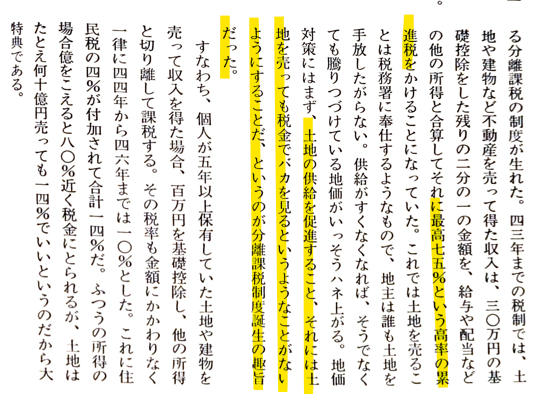 る分離課税の制度が生れた。四三年までの税制では、土
地や建物など不動産を売って得た収入は、三〇万円の基
礎控除をした残りの二分の一の金額を、給与や配当など
の他の所得と合算してそれに最高七五%という高率の累
進税をかけることになっていた。これでは土地を売るこ
とは税務署に奉仕するようなもので、地主は誰も土地を
手放したがらない。供給がすくなくなれば、そうでなく
ても騰りつづけている地価がいっそうハネ上がる。地価
対策にはまず、土地の供給を促進すること、それには土
地を売っても税金でバカを見るというようなことがない
ようにすることだ、というのが分離課税制度誕生の趣旨
だった。
すなわち、個人が五年以上保有していた土地や建物を
売って収入を得た場合、百万円を基礎控除し、他の所得
と切り離して課税する。その税率も金額にかかわりなく
一律に四四年から四六年までは一〇%とした。これに住
民税の四%が付加されて合計一四%だ。ふつうの所得の
場合億をこえると八〇%近く税金にとられるが、土地は
たとえ何十億円売っても一四%でいいというのだから大
特典である。